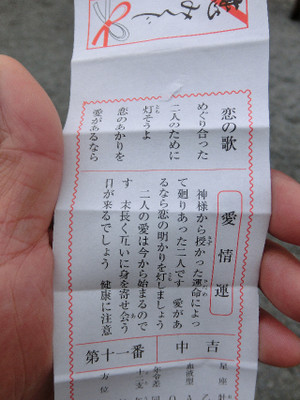 恋の歌
めぐり合った
二人のために
灯そうよ
恋のあかりを
愛があるなら
愛情運
神様から授かった運命によっ
て廻りあった二人です 愛があ
るなら恋の明かりを灯しましょう
二人の愛は今から始まるので
す 末長く互いに身を寄せ会う
日が来るでしょう 健康に注意
第十一番
中吉
星座
血液型
方位